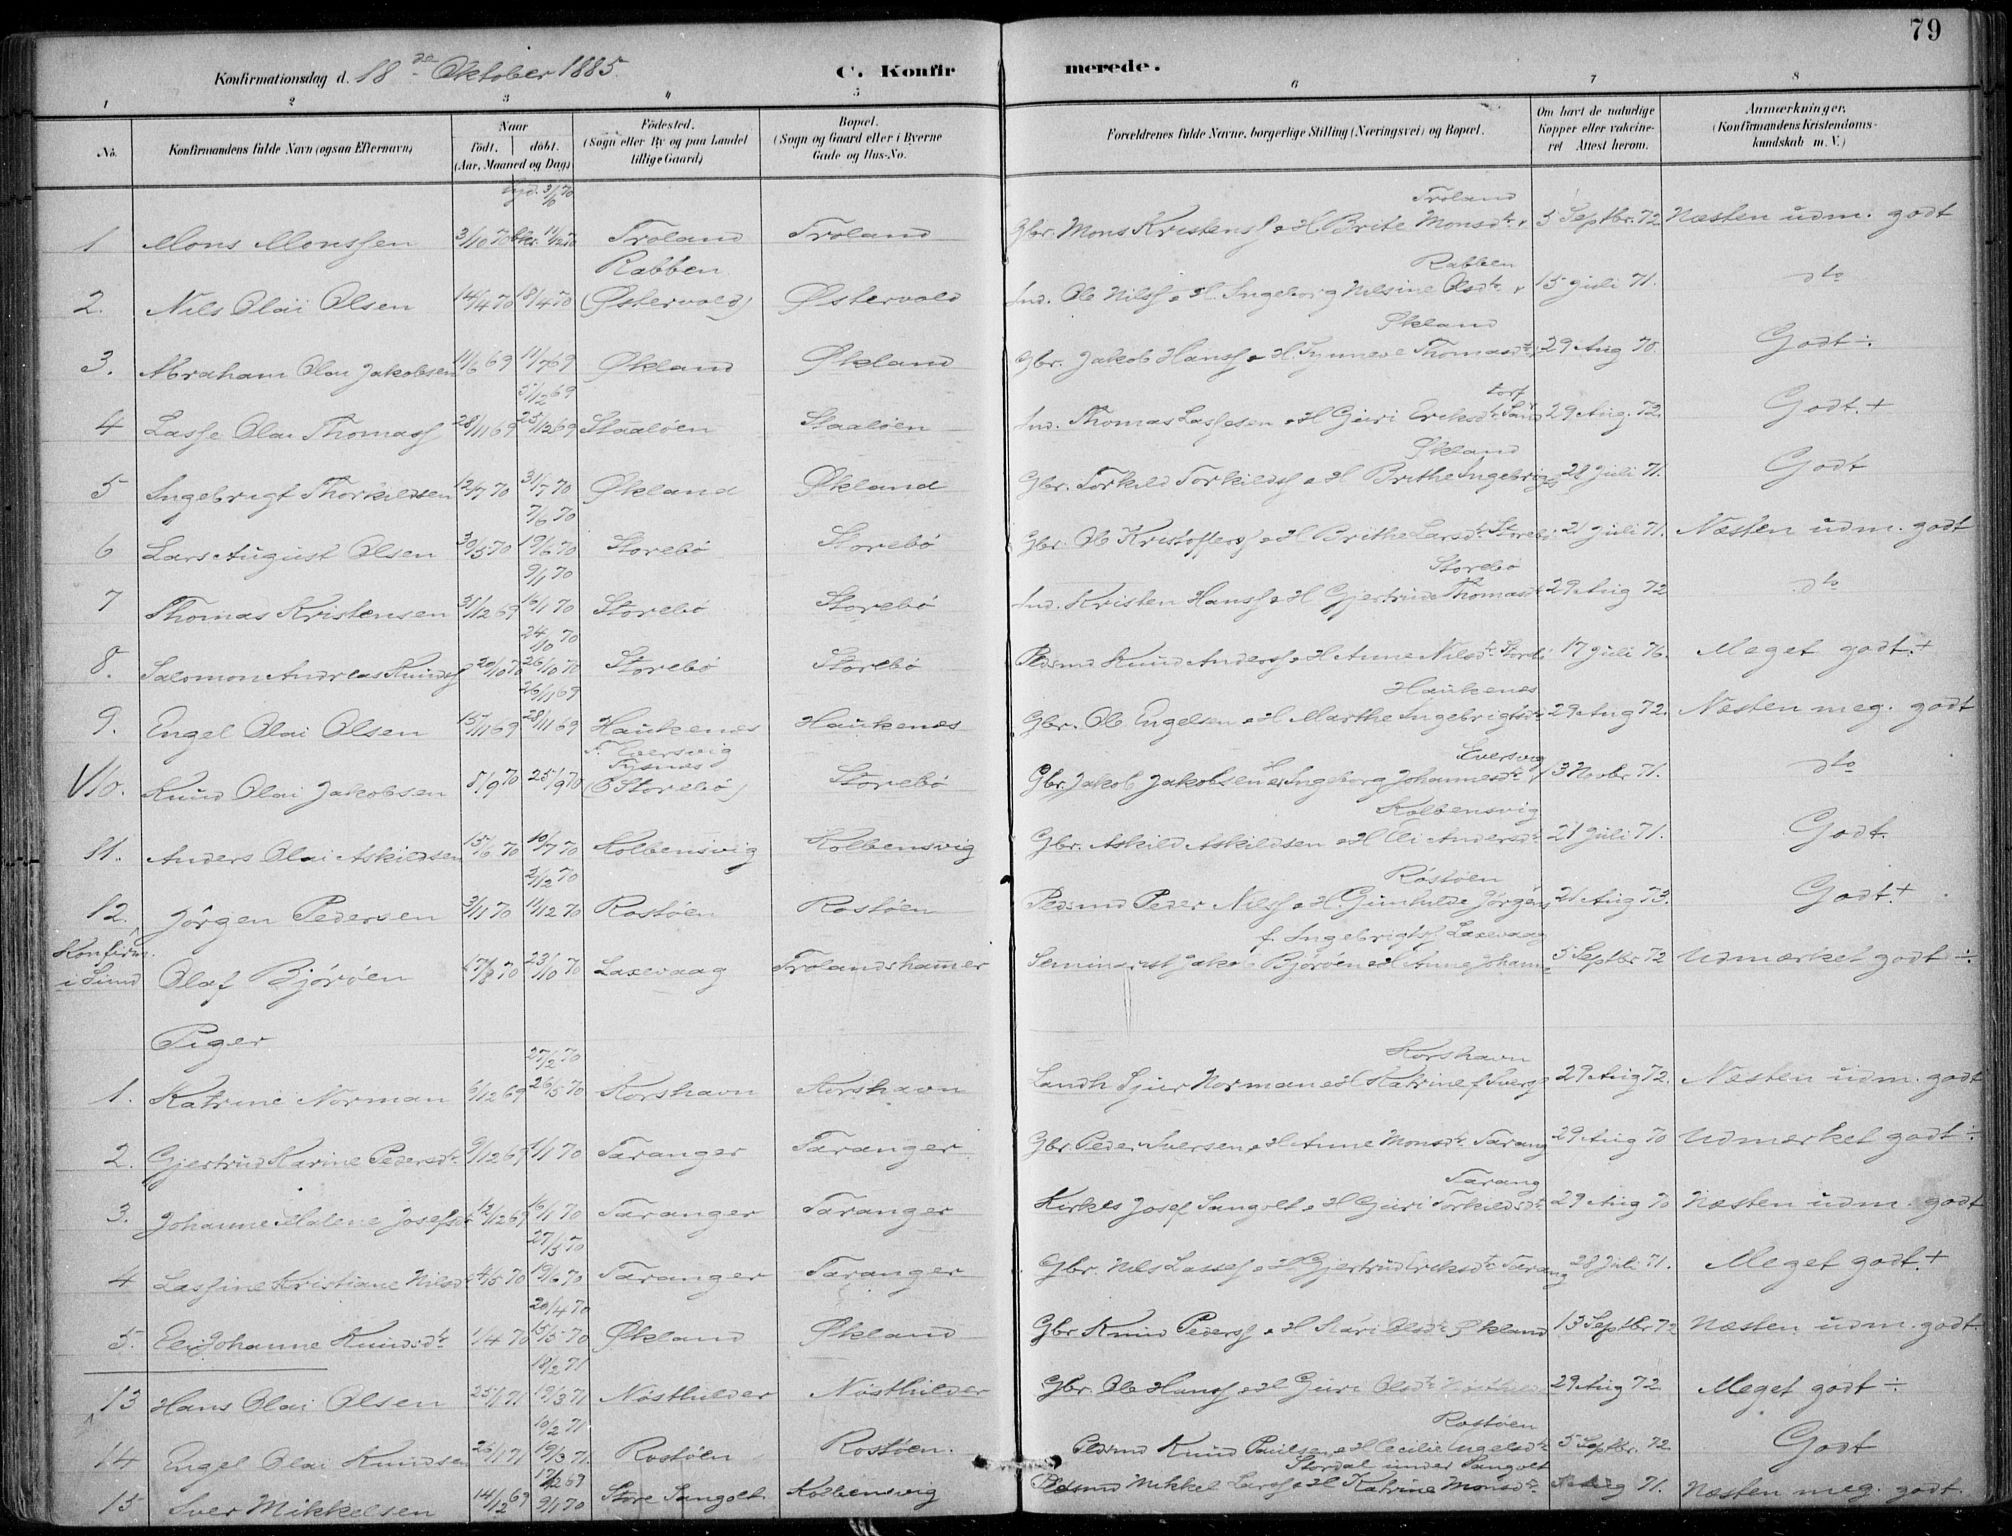 79
Konfirmationsdag d. 18de Oktober 1885.
C. Konfirmerede.
1 2 3 4 5 6 7 8
No. Konfirmandens fulde Navn (ogsaa Efternavn) Naar født. døbt. (Aar, Maaned og Dag) Fødested. (Sogn eller By og paa Landet tillige Gaard) Bopæl. (Sogn og Gaard eller i Byerne Gade og Hus-No. Forældrenes fulde Navne, borgerlige Stilling (Næringsvei) og Bopæl. Om havt de naturlige Kopper eller vakcineret Attest herom. Anmærkninger. (Konfirmandens Kristendomskundskab m. V.)
1 Mons Monssen 3/10 70 11/12 70 Troland Troland Gbr. Mons Kristens. o H Brite Monsdtr. Troland 5 Septbr. 72 Næsten udm. godt
2. Nils Olai Olsen 14/4 70 18/4 70 Rabben (Østervold) Østervold Ind. Ole Nilss. o H. Ingeborg Nilsine Olsdtr. Rabben 15 Juli 71. dto
3. Abraham Olai Jakobsen 11/6 69 11/7 69 Økland Økland Gbr. Jakob Hanss. o H Synneve Thomasdtr. Økland 29 Aug 70. Godt ÷
4 Lasse Olai Thomass. 28/11 69 5/12 69 25/12 69 Staaløen Staaløen Ind. Thomas Lassesen o H Guri Eriksdtr. 29 Aug. 72. Godt. +
5 Ingebrigt Thorkildsen 12/7 70 31/7 70 Økland Økland Gbr. Torkild Torkildss. o H Brithe Ingebrigs Økland 28 Juli 71. Godt
6 Lars August Olsen 30/5 70 7/6 70 19/6 70 Storebø Storebø Gbr. Ole Kristoffers. o H Brithe Larsdtr. Storebø 21 Juli 71. Næsten udm. godt
7 Thomas Kristensen 31/12 69 9/1 70 16/1 70 Storebø Storebø Ind. Kristen Hanss. o H Gjertrude Thomasdtr. Storebø 29 Aug 72 dto
8. Salomon Andreas Knuds. 20/10 70 24/10 70 26/10 70 Storebø Storebø Pedsmd Knud Anderss. o H Anne Nilsdtr. Storebø 17 Juli 76. Meget godt. +
9. Engel Olai Olsen 15/11 69 26/11 69 28/11 69 Haukenes Haukenes Gbr. Ole Engelsen o H Marthe Ingebrigtsdtr. Haukenes 29 Aug 72. Næsten meg. godt
10. Knud Olai Jakobsen 8/9 70 25/9 70 Eversvig Tysnes (Storebø) Storebø Gbr. Jakob Jakobsen Ingeborg Johannesdtr. Eversvig 3 Novbr. 71. dto
11. Anders Olai Askildsen 15/6 70 10/7 70 Kolbensvig Kolbensvig Gbr. Askild Askildsen o H Eli Andersdtr. Kolbensvig 21 Juli 71. Godt.
12. Jørgen Pedersen 3/11 70 2/12 70 11/12 70 Rostøen Rostøen Pedsmd Peder Nilss. o H. Gunhilde Jørgens Rostøen 21 Aug 73. Godt. +
Konfirm. i Sund Olaf Bjørøen 17/8 70 23/10 70 Laxevaag Trolandshamer Seminarist Jakob Bjørøen o H Anne Johanne f. Ingebrigts. Laxevaag 5 Septbr 72 Udmærket godt ÷
Piger
1. Katrine Norman 6/12 69 27/2 70 26/5 70 Korshavn Korshavn Landh Sjur Norman o H Katrine f Sverg Korshavn 29 Aug 72. Næsten udm. godt
2. Gjertrud Karine Pedersdtr. 9/12 69 1/1 70 Taranger Taranger Gbr. Peder Iversen o H Anne Monsdtr. Tarang 29 Aug 70 Udmærket godt ÷
3. Johanne Malene Josefsdtr 12/12 69 16/1 70 Taranger Taranger Kirkes Josef Sangolt o H Guri Torkildsdtr. Tarang 29 Aug 70 Næsten udm. godt
4 Lassine Kristiane Nilsdtr 4/5 70 27/5 70 19/6 70 Taranger Taranger Gbr. Nils Lasses. o H Gjertrud Eriksdtr. Tarang 28 Juli 71. Meget godt. +
5. Eli Johanne Knudsdtr. 1/4 70 20/4 70 15/5 70 Økland Økland Gbr. Knud Peders. o H Siri Olsdtr. Økland 13 Septbr 72 Næsten udm. godt.
13 Hans Olai Olsen 25/1 71 18/2 71 19/3 71 Nøsthilder Nøsthilder Gbr. Ole Hanss. o H Guri Olsdtr. 29 Aug 72 Meget godt ÷
14 Engel Olai Knudsen 26/1 71 10/2 71 19/3 71. Rostøen Rostøen. Pedsmd Knud Paulsen o H Cecilie Engelsdtr. Rostøen 5 Septbr. 72 Godt
15 Iver Mikkelsen 14/12 69 17/12 69 9/1 70 Store Sangolt Kolbensvig Pedsmd Mikkel Larss. o H Katrine Monsdtr. Stordal under Sangolt 71. Næsten meg. godt.